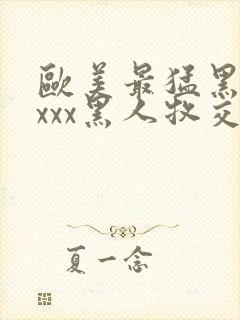 歐美最猛黑
xxx黑人牧交
夏一念